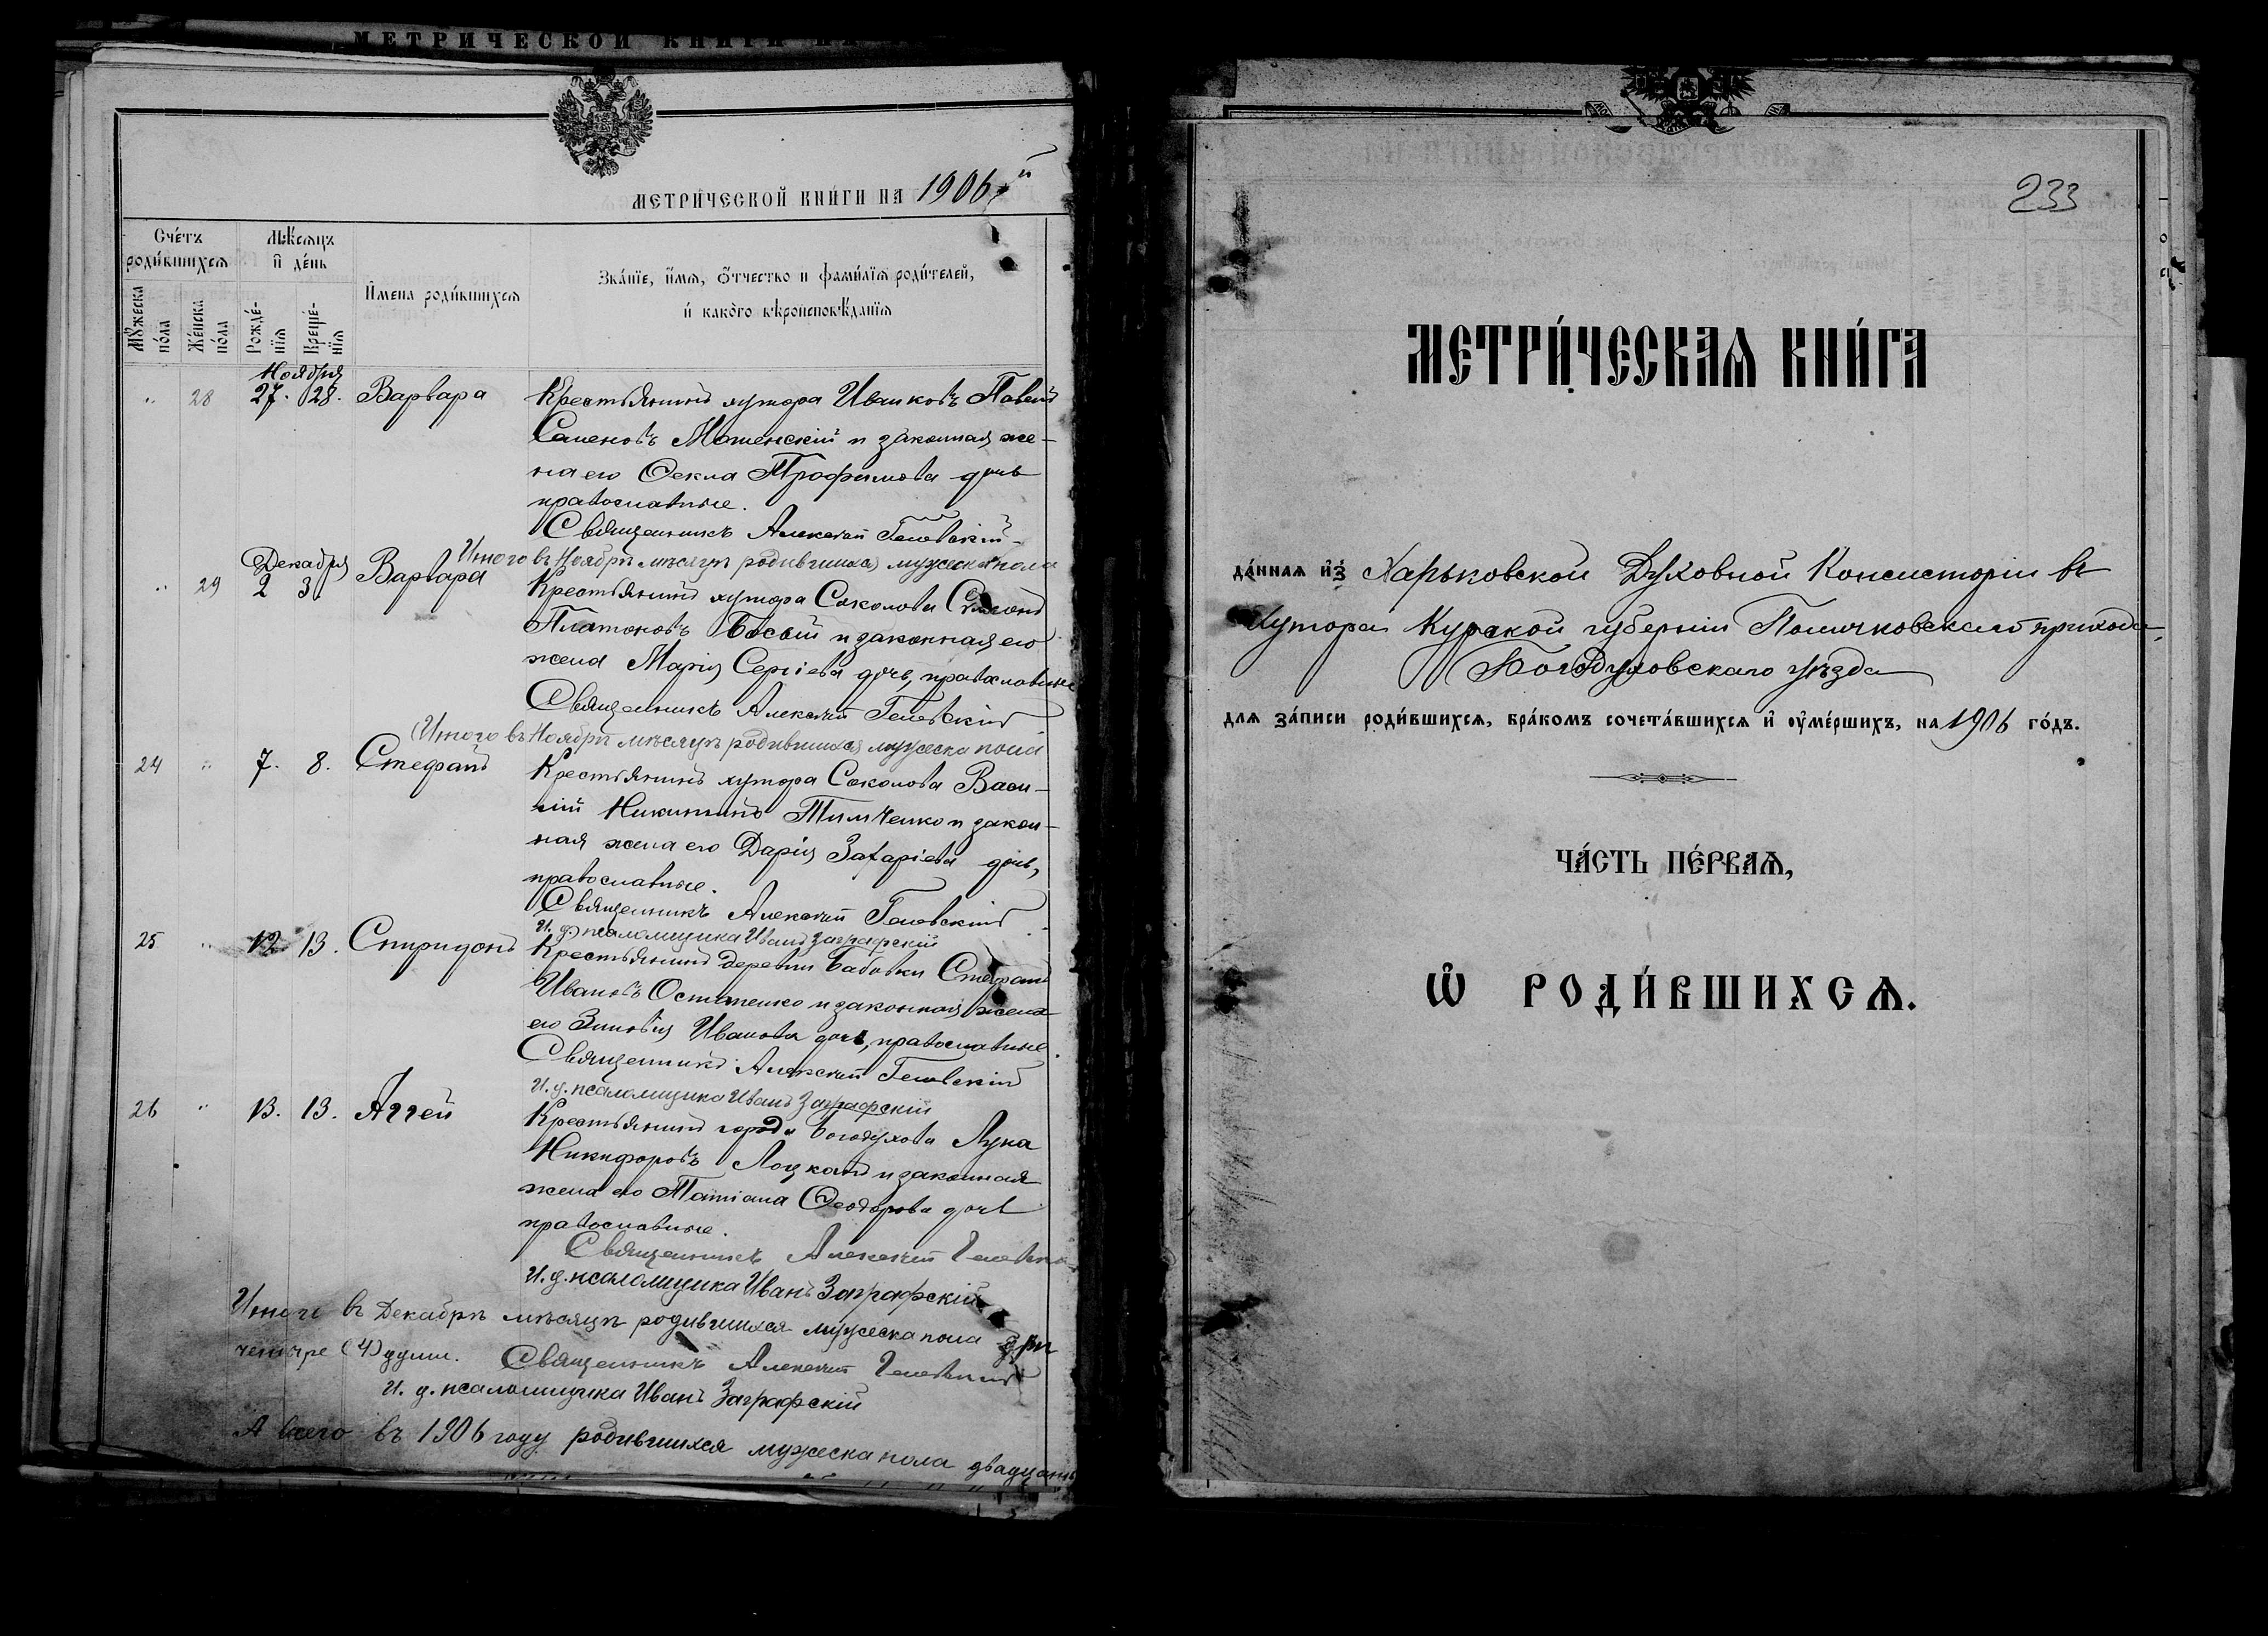 МЕТРИЧЕСКОЙ КНИГИ НА
МЕТРИ́ЧЕСКОЙ КНИ́ГИ НА 1906 й
Сче́тъ роди́вшихсѧ
Мѣ́сѧцъ и҆ де́нь
И҆мена роди́вшихсѧ
Зва́нїе, и҆́мѧ, ѻ҆́тчество и фами́лїѧ роди́телей,
и҆ како́го вѣроисповѣ́данїѧ
Мꙋ́жеска по́ла
Же́нска по́ла
Рожде́нїѧ
Креще́нїѧ
Ноября
" 28 27. 28. Варвара Крестьянинъ хутора Иванковъ Павелъ
Семеновъ Мошенскій и законная же-
на его Ѳекла Трофимова дочь
православные.
Священникъ Алексей
Итого въ Ноябрѣ мѣсяцѣ родившихся мужеска пола
Декабря
" 29 2 3. Варвара Крестьянинъ хутора Соколова
Платоновъ Босый и законная его
жена Марія Сергіева дочь, православные
Священникъ Алексей
(Итого въ Ноябрѣ мѣсяцѣ родившихся мужеска пола
24 " 7. 8. Стефанъ Крестьянинъ хутора Соколова Васи-
лій Никитинъ Тимченко и закон-
ная жена его Дарія Захаріева дочь,
православные.
Священникъ Алексей
И. д. псаломщика Иванъ Заграфскій
25 " 12. 13. Спиридонъ Крестьянинъ деревни Бабовки Стефанъ
Ивановъ Остапенко и законная жена
его Зиновія Иванова дочь, православные.
Священникъ Алексей
И. д. псаломщика Иванъ Заграфскій
26 " 13. 13. Аггей Крестьянинъ города Богодухова Лука
Никифоровъ Лоцканъ и законная
жена его Татіана Ѳеодорова дочь
православные.
Священникъ Алексей
И. д. псаломщика Иванъ Заграфскій
Итого въ Декабрѣ мѣсяцѣ родившихся мужеска пола три
четыре (4) души. Священникъ Алексей
И. д. псаломщика Иванъ Заграфскій
А всего въ 1906 году родившихся мужеска пола двадцать
233
МЕТРИ́ЧЕСКАѦ КНИ́ГА
да́ннаѧ и҆з̾ Харьковской Духовной Консисторіи въ
хутора Курской губерніи прихода,
Богодуховскаго уѣзда
для за́писи роди́вшихсѧ, бра́комъ сочета́вшихсѧ и҆ ᲂу҆ме́ршихъ, на 1906 го́дъ.
ЧА́СТЬ ПЕ́РВАѦ,
Ѡ҆ РОДИ́ВШИХСѦ.